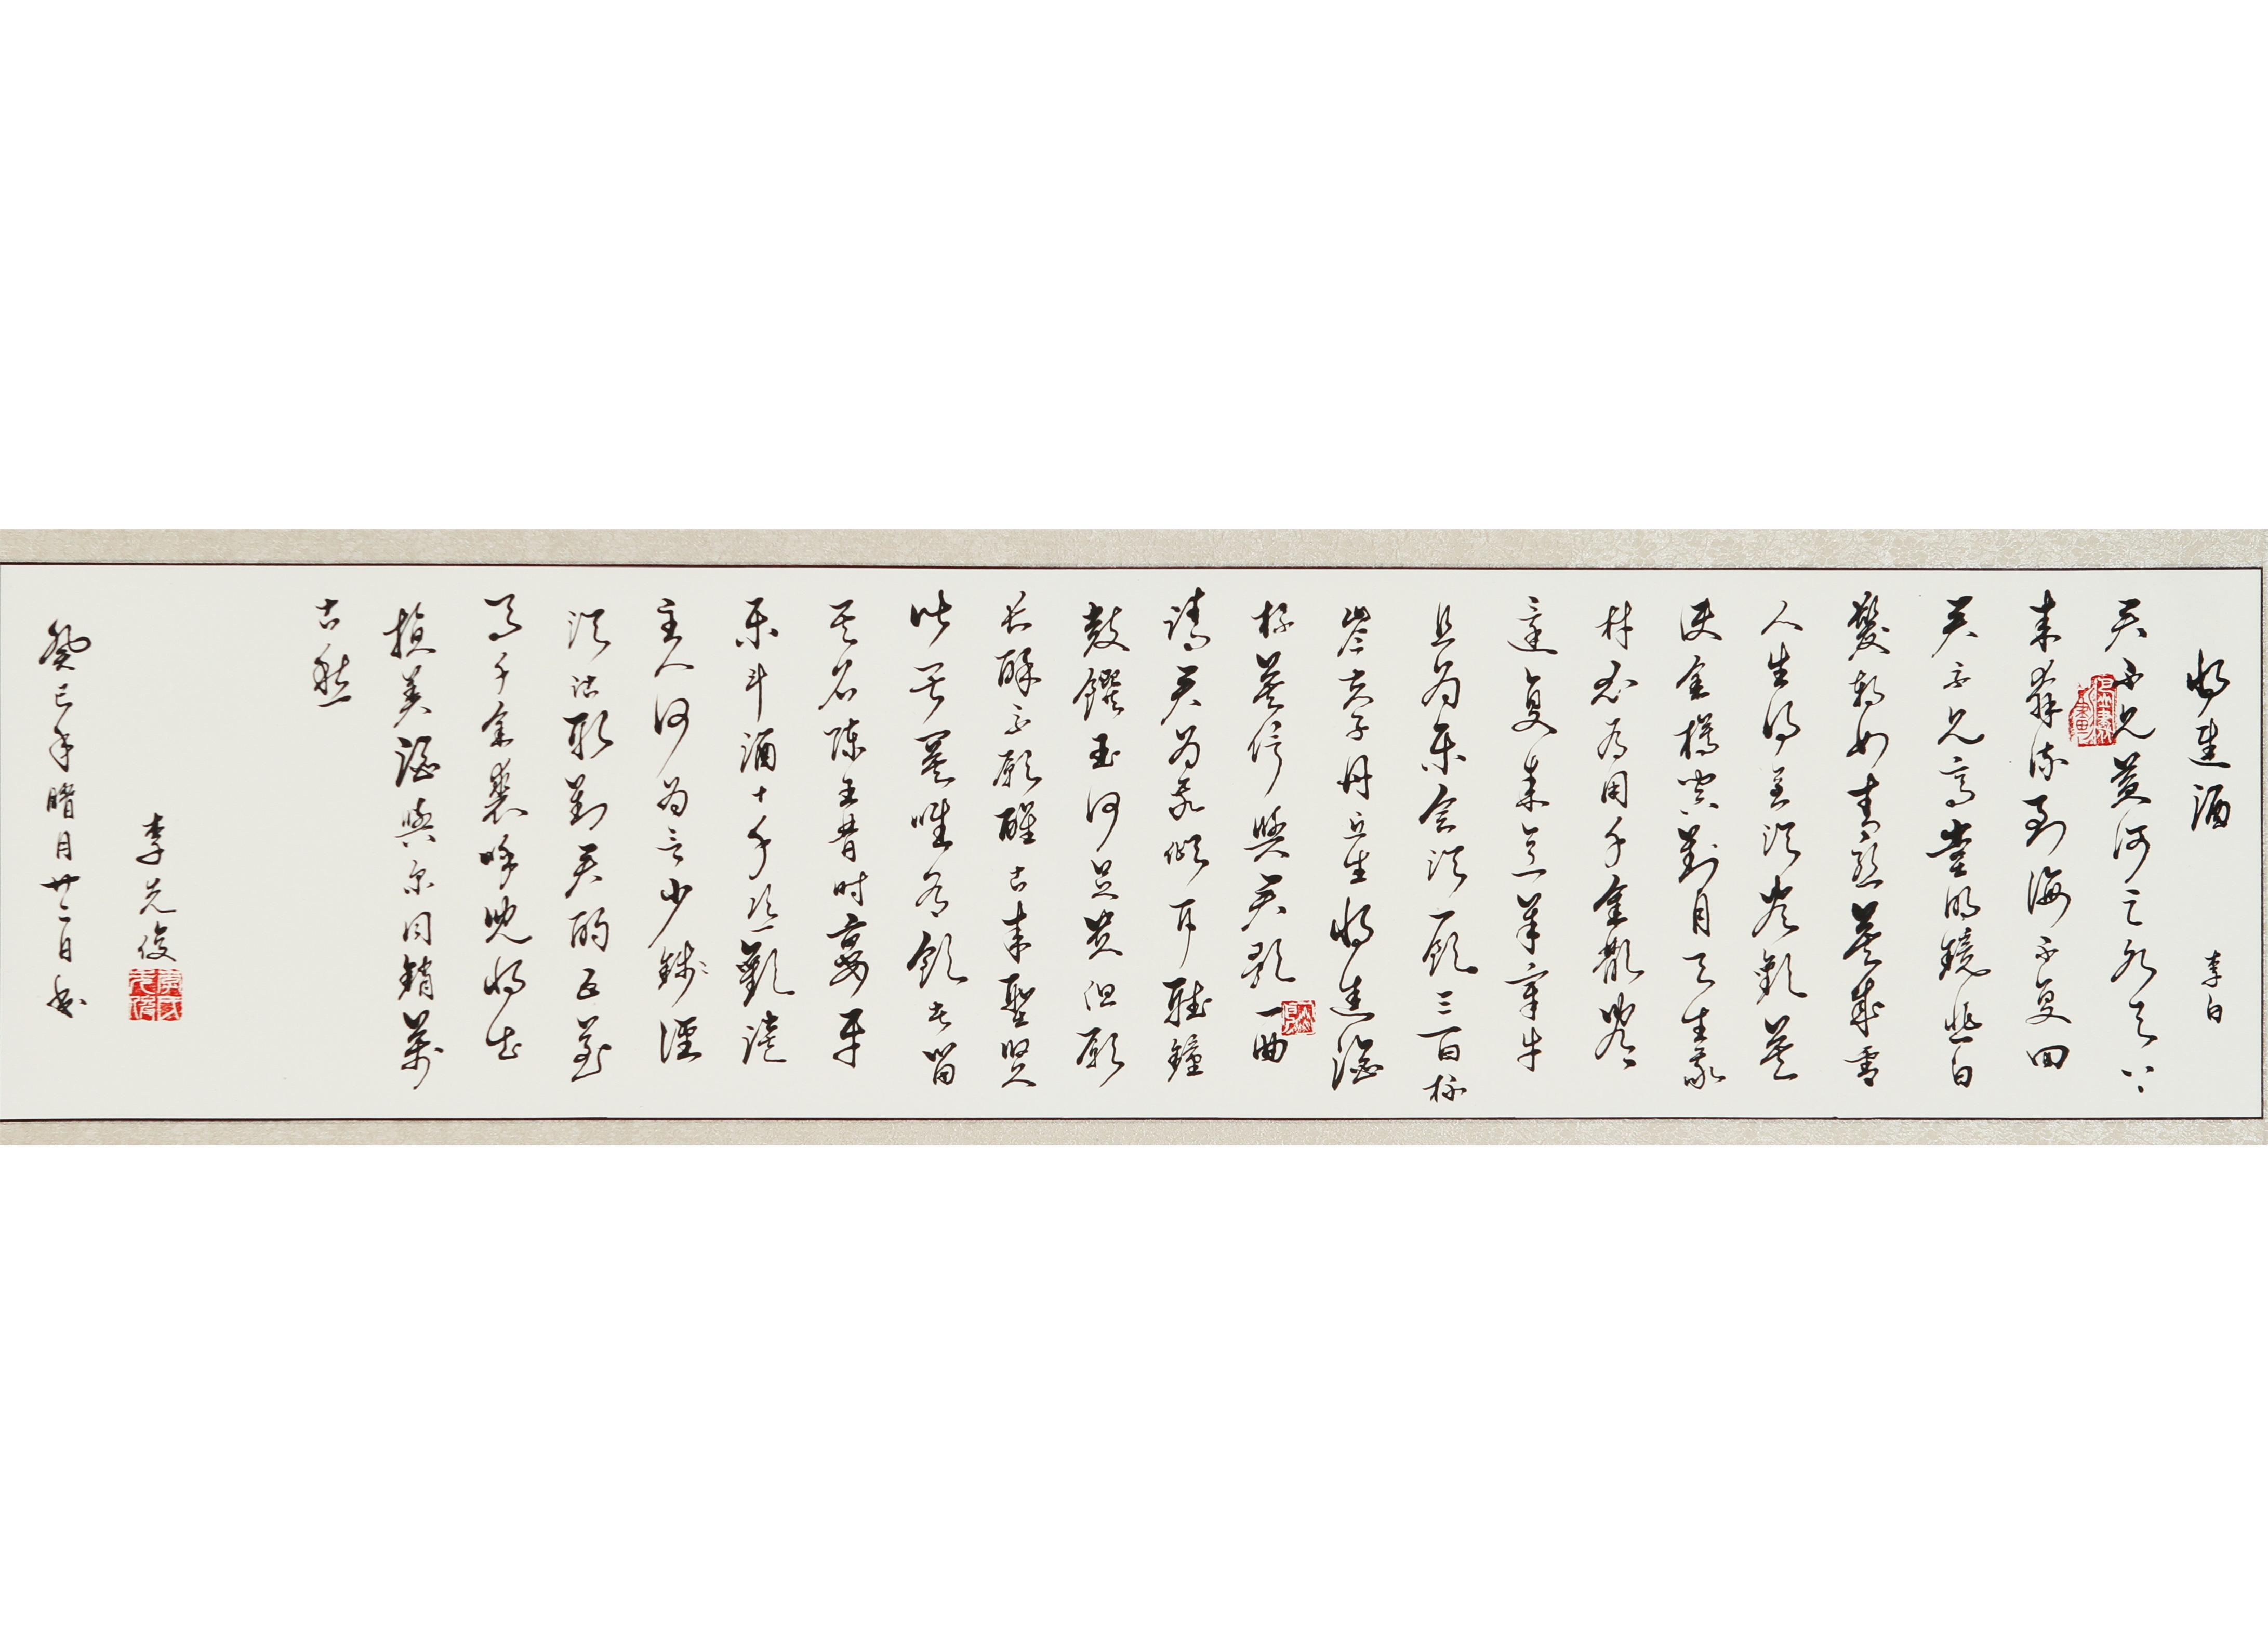 将进酒 李白
君不見黄河之水天上
来奔流到海不復回
君不見高堂明鏡悲白
髮朝如青絲暮成雪
人生得意須盡歡莫
使金樽空對月天生我
材必有用千金散盡
還復來烹羊宰牛
且為樂會須一飲三百杯
岑夫子丹丘生將進酒
杯莫停與君歌一曲
請君為我傾耳聽鐘
鼓饌玉何足貴但願
长醉不願醒古來聖賢
皆寂寞唯有飲者留
其名陳王昔时宴平
乐斗酒十千恣歡謔
主人何為言少錢徑
須沽取對君酌五花
馬千金裘呼兒將出
換美酒與尔同銷萬
古愁
李光俊
癸巳年腊月廿二日书